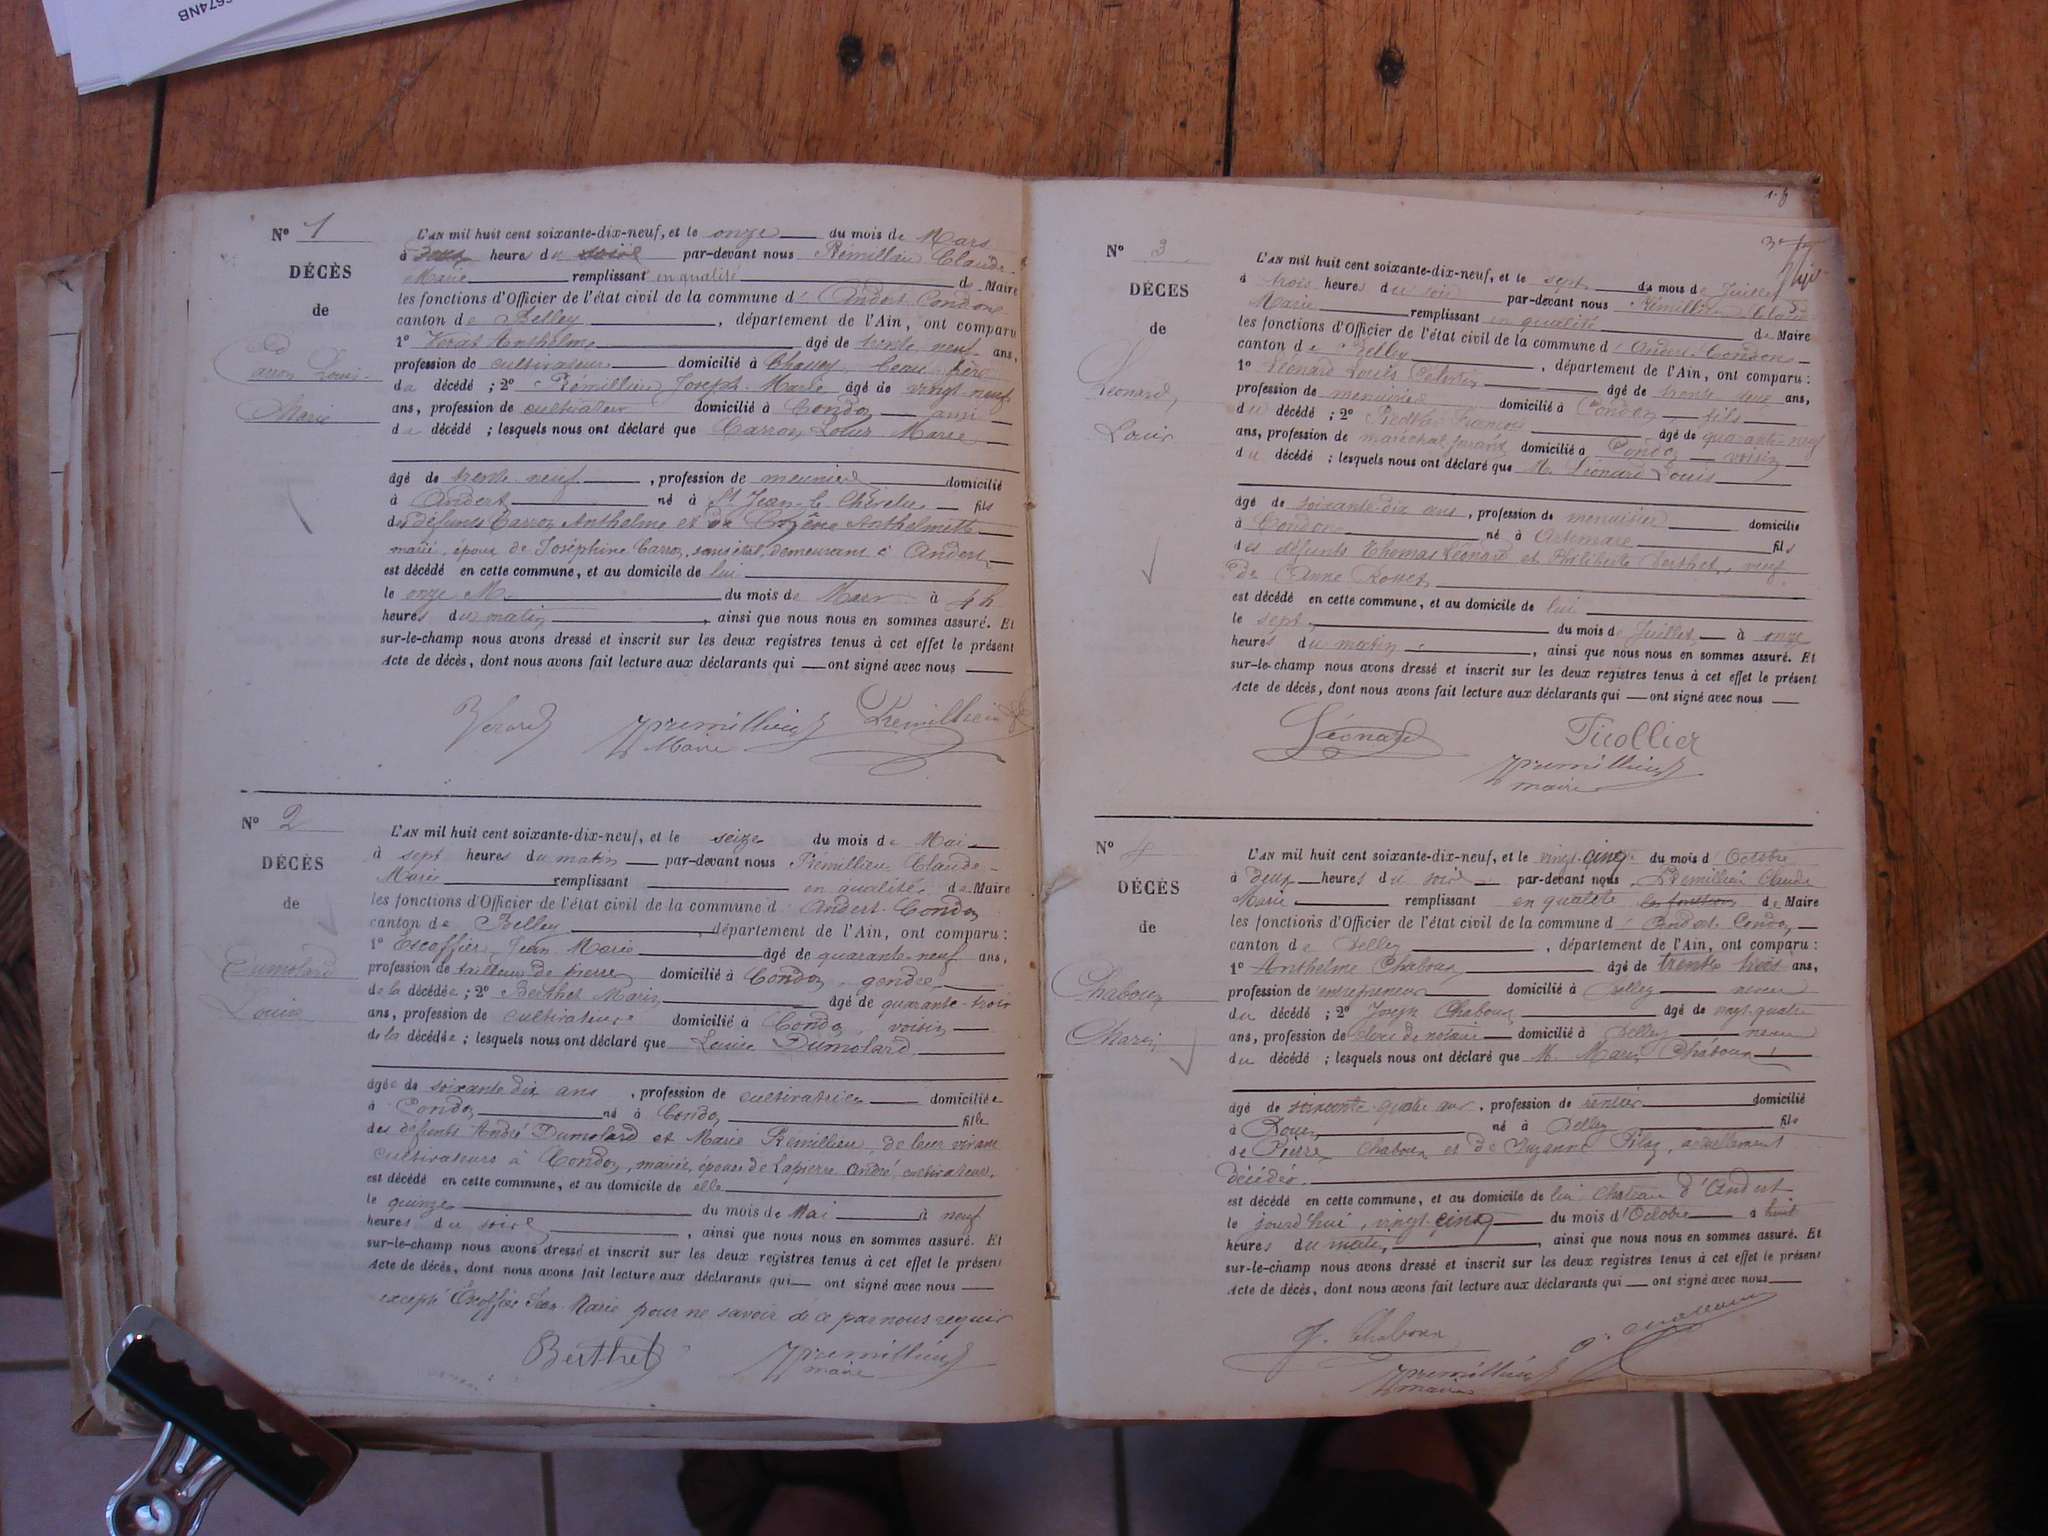 674NB
N° 1
DÉCÈS
de
Carron Louis
Marie
L'AN mil huit cent soixante-dix-neuf, et le onze du mois de Mars
à heures du par-devant nous Rémillieu Claude
Marie remplissant en qualité de Maire
les fonctions d'Officier de l'état civil de la commune d'Andert-Condon
canton de Belley, département de l'Ain, ont comparu
1° Anthelme âgé de trente neuf ans,
profession de cultivateur domicilié à beau-frère
du décédé ; 2° Rémillieu Joseph Marie âgé de vingt neuf
ans, profession de cultivateur domicilié à Condon ami
du décédé ; lesquels nous ont déclaré que Carron Louis Marie
âgé de trente neuf, profession de meunier domicilié
à Andert né à St Jean le Chevelu fils
des défunts Carron Anthelme et de Anthelmette
marié, époux de Joséphine Carron, sans état, demeurant à Andert
est décédé en cette commune, et au domicile de lui
le onze M. du mois de Mars à 4 h
heures du matin, ainsi que nous nous en sommes assuré. Et
sur-le-champ nous avons dressé et inscrit sur les deux registres tenus à cet effet le présent
Acte de décès, dont nous avons fait lecture aux déclarants qui — ont signé avec nous
premillieu Premillieu
Maire
N° 2
DÉCÈS
de
Dumolard
Louise
L'AN mil huit cent soixante-dix-neuf, et le seize du mois de Mai
à sept heures du matin par-devant nous Rémillieu Claude
Marie remplissant en qualité de Maire
les fonctions d'Officier de l'état civil de la commune d'Andert-Condon
canton de Belley, département de l'Ain, ont comparu :
1° Escoffier Jean Marie âgé de quarante-neuf ans,
profession de tailleur de pierre domicilié à Condon, gendre
de la décédée ; 2° Berthet Marin âgé de quarante-trois
ans, profession de cultivateur domicilié à Condon, voisin
de la décédée ; lesquels nous ont déclaré que Louise Dumolard
âgée de soixante dix ans, profession de cultivatrice domiciliée
à Condon né à Condon fille
des défunts André Dumolard et Marie Rémillieu, de leur vivant
cultivateurs à Condon, mariée, épouse de Lapierre André, cultivateur.
est décédé en cette commune, et au domicile de elle
le quinze du mois de Mai à neuf
heures du soir, ainsi que nous nous en sommes assuré. Et
sur-le-champ nous avons dressé et inscrit sur les deux registres tenus à cet effet le présent
Acte de décès, dont nous avons fait lecture aux déclarants qui — ont signé avec nous
excepté Escoffier Jean Marie pour ne savoir de ce par nous requis
Berthet premillieu
maire
N° 3
DÉCÈS
de
Léonard,
Louis
L'AN mil huit cent soixante-dix-neuf, et le sept du mois de Juillet
à trois heures du soir par-devant nous Rémillieu Claude
Marie remplissant en qualité de Maire
les fonctions d'Officier de l'état civil de la commune d'Andert-Condon
canton de Belley, département de l'Ain, ont comparu :
1° Léonard Louis Célestin âgé de trente deux ans,
profession de menuisier domicilié à Condon fils
du décédé ; 2° François âgé de quarante-neuf
ans, profession de maréchal ferrant domicilié à Condon voisin
du décédé ; lesquels nous ont déclaré que M. Léonard Louis
âgé de soixante-dix ans, profession de menuisier domicilié
à Condon né à Artemare fils
des défunts Thomas Léonard et Philiberte Berthet, veuf
de Anne
est décédé en cette commune, et au domicile de lui
le sept du mois de Juillet à onze
heures du matin, ainsi que nous nous en sommes assuré. Et
sur-le-champ nous avons dressé et inscrit sur les deux registres tenus à cet effet le présent
Acte de décès, dont nous avons fait lecture aux déclarants qui — ont signé avec nous
Léonard
premillieu
maire
N° 4
DÉCÈS
de
Chaboux
Marin
L'AN mil huit cent soixante-dix-neuf, et le vingt-cinq du mois d'Octobre
à deux heures du soir par-devant nous Premillieu Claude
Marie remplissant en qualité les fonctions de Maire
les fonctions d'Officier de l'état civil de la commune d'Andert-Condon
canton de Belley, département de l'Ain, ont comparu :
1° Anthelme Chaboux âgé de trente trois ans,
profession de entrepreneur domicilié à Belley neveu
du décédé ; 2° Joseph Chaboux âgé de vingt quatre
ans, profession de clerc de notaire domicilié à Belley neveu
du décédé ; lesquels nous ont déclaré que M. Marin Chaboux
âgé de soixante quatre ans, profession de rentier domicilié
à Rouen né à Belley fils
de Pierre Chaboux et de Suzanne, actuellement
décédés
est décédé en cette commune, et au domicile de lui château d'Andert
le jourd'hui, vingt-cinq du mois d'Octobre à huit
heures du matin, ainsi que nous nous en sommes assuré. Et
sur-le-champ nous avons dressé et inscrit sur les deux registres tenus à cet effet le présent
Acte de décès, dont nous avons fait lecture aux déclarants qui — ont signé avec nous
J. Chaboux
premillieu
maire